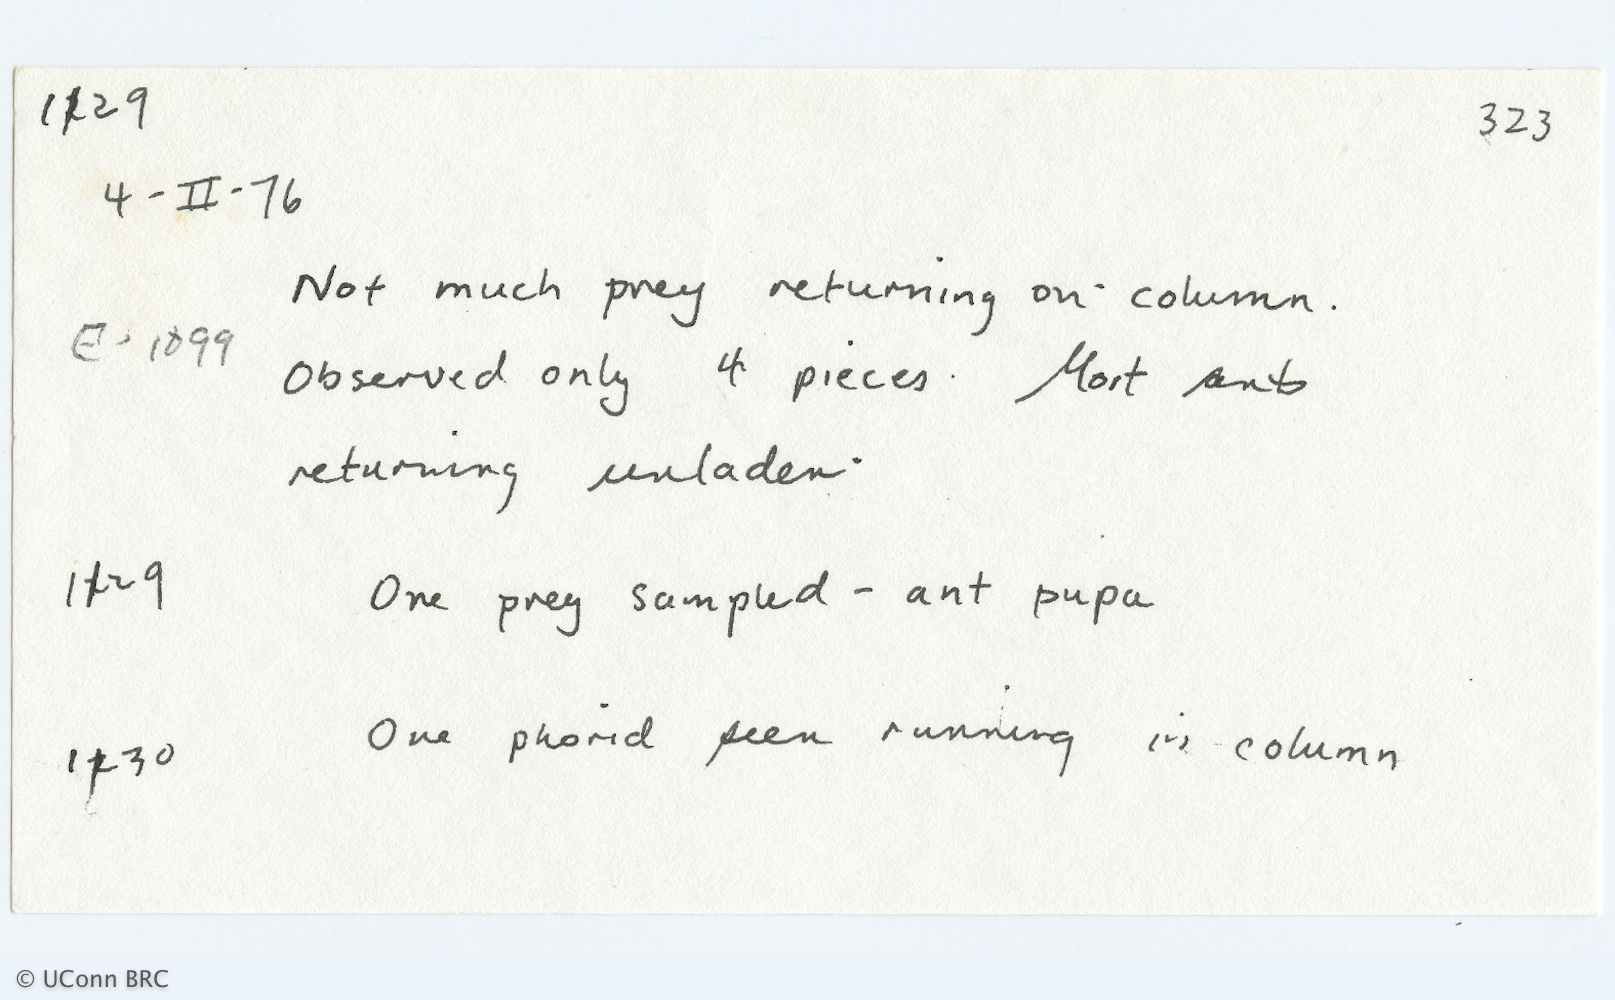 1129 323
4-II-76
Not much prey returning on column.
E-1899
Observed only 4 pieces. Most ants
returning unladen.
1129 One prey sampled - ant pupa
1130 One phorid seen running in column
© UConn BRC